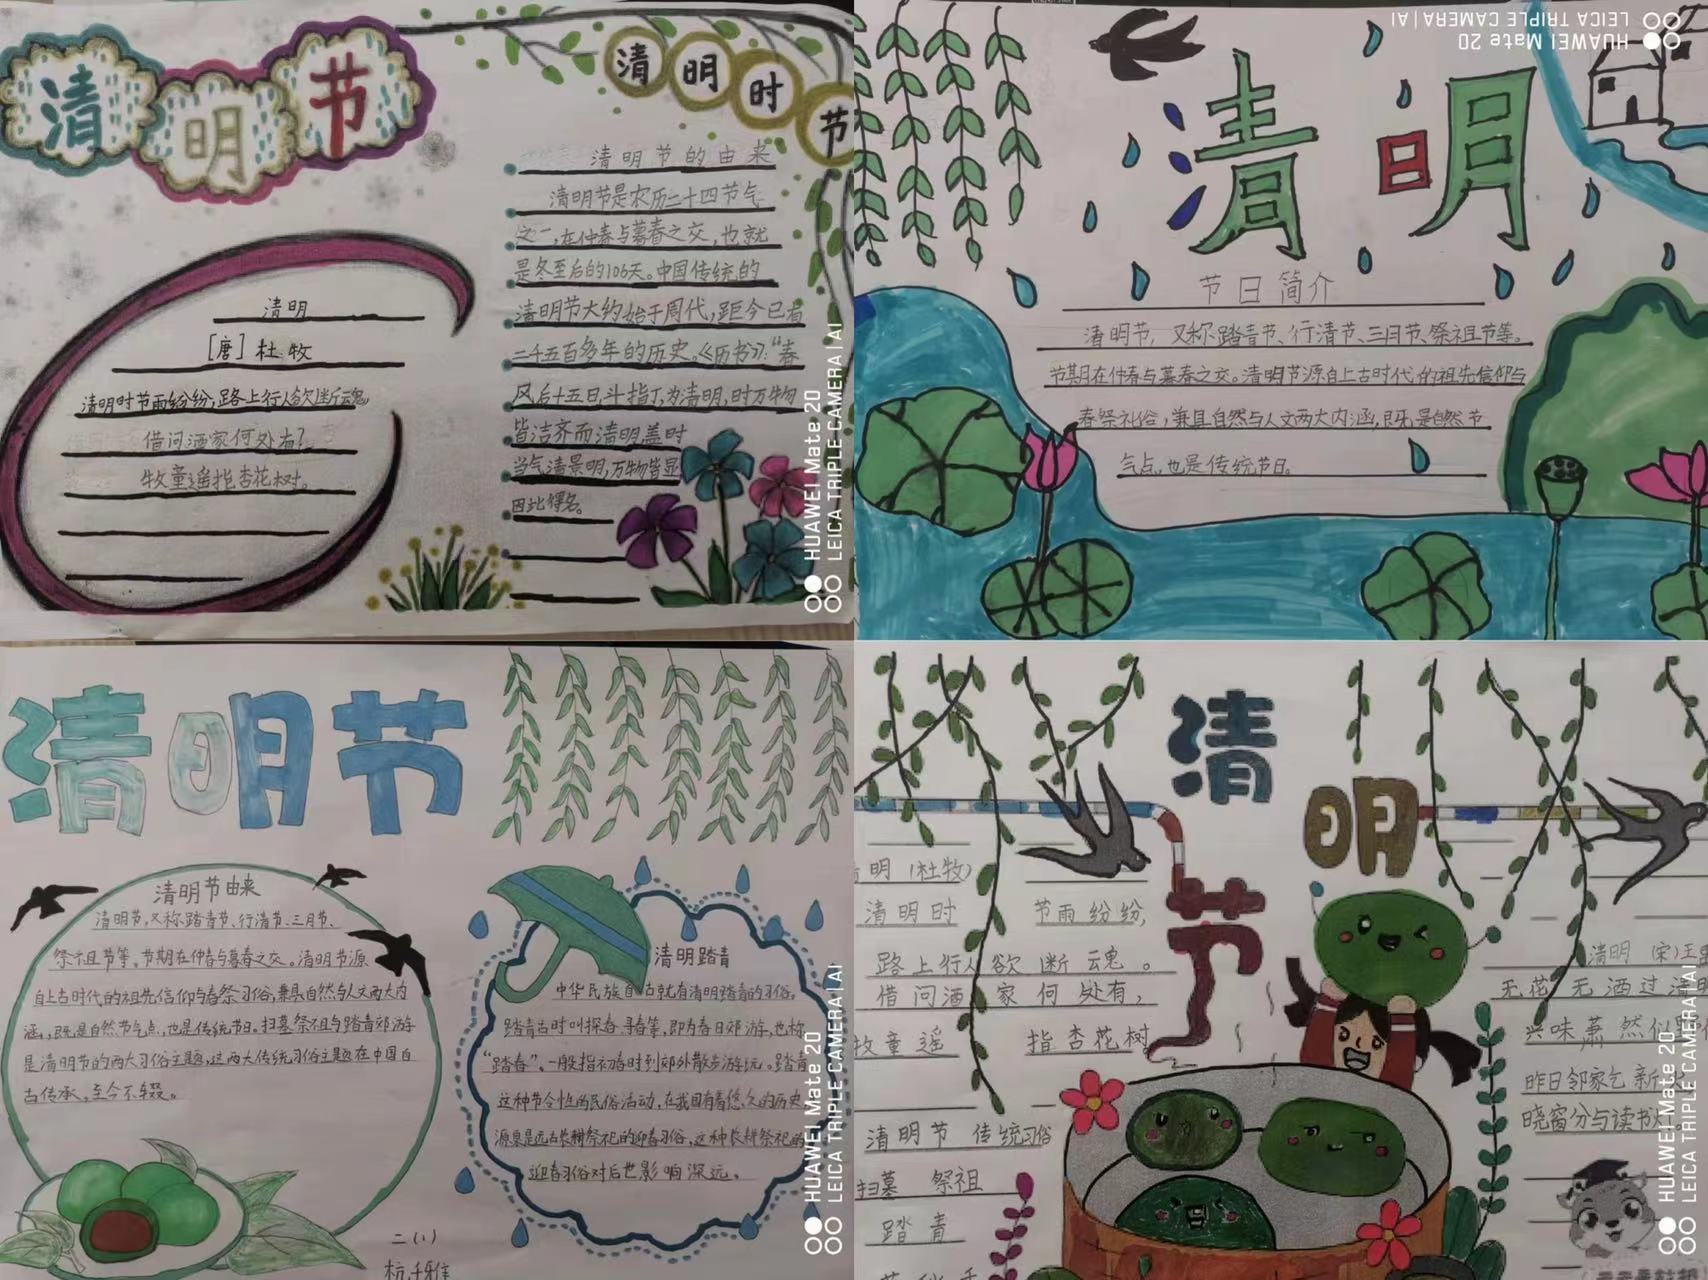 清
明
节
清
明
时
节
清明
[唐] 杜牧
清明时节雨纷纷，路上行人欲断魂。
借问酒家何处有？
牧童遥指杏花树。
清明节的由来
清明节是农历二十四节气
之一，在仲春与暮春之交，也就
是冬至后的106天。中国传统的
清明节大约始于周代，距今已有
二千五百多年的历史。《历书》："春
风后十五日，斗指丁，为清明，时万物
皆洁齐而清明盖时
当气清景明，万物皆显
因此得名。
HUAWEI Mate 20
LEICA TRIPLE CAMERA | AI
HUAWEI Mate 20
LEICA TRIPLE CAMERA | AI
清明
节日简介
清明节，又称踏青节、行清节、三月节、祭祖节等。
节期在仲春与暮春之交。清明节源自上古时代的祖先信仰与
春祭礼俗，兼具自然与人文两大内涵，既是自然节
气点，也是传统节日。
清明节
清明节由来
清明节，又称踏青节、行清节、三月节、
祭祖节等。节期在仲春与暮春之交。清明节源
自上古时代的祖先信仰与春祭习俗，兼具自然与人文两大内
涵，既是自然节气点，也是传统节日。扫墓祭祖与踏青郊游
是清明节的两大习俗主题，这两大传统习俗主题在中国自
古传承，至今不辍。
二（1）
清明踏青
中华民族自古就有清明踏青的习俗。
踏青古时叫探春、寻春等，即为春日郊游，也称
"踏春"。一般指初春时到郊外散步游玩。踏青
这种节令性的民俗活动，在我国有着悠久的历史
源泉是远古农耕祭祀的迎春习俗，这种农耕祭祀的
迎春习俗对后世影响深远。
HUAWEI Mate 20
LEICA TRIPLE CAMERA | AI
清
明
节
明（杜牧）
清明时 节雨纷纷，
路上行人欲断云魂。
借问酒家何处有，
牧童遥 指杏花树
清明节 传统习俗
扫墓 祭祖
踏青
清明（宋）王
无花无酒过清明
兴味萧然似野
昨日邻家乞新
晓窗分与读书
HUAWEI Mate 20
LEICA TRIPLE CAMERA | AI